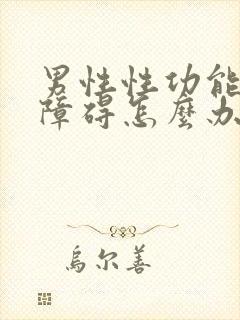 男性性功能
障碍怎麼办
烏尔善